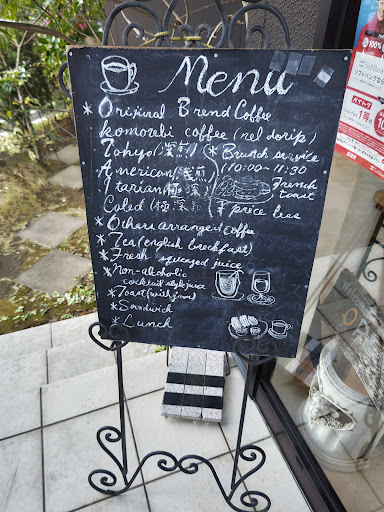 Menu
* Orijinal Brend Coffee
Komorebi coffee (nel dorip)
Tokyo (深煎)
American (浅煎)
Itarian (極深煎
Coled (極深煎
* Brunch service
(10:00-11:30
French
toast
半 price less
* Others arranged coffee
* Tea (english breckfast)
* Fresh squeezed juice
* Non-alcoholic
cocktail style juice
* Toast (with jam)
* Sandwich
* Lunch
100%
ソフトバンクなら
1等の